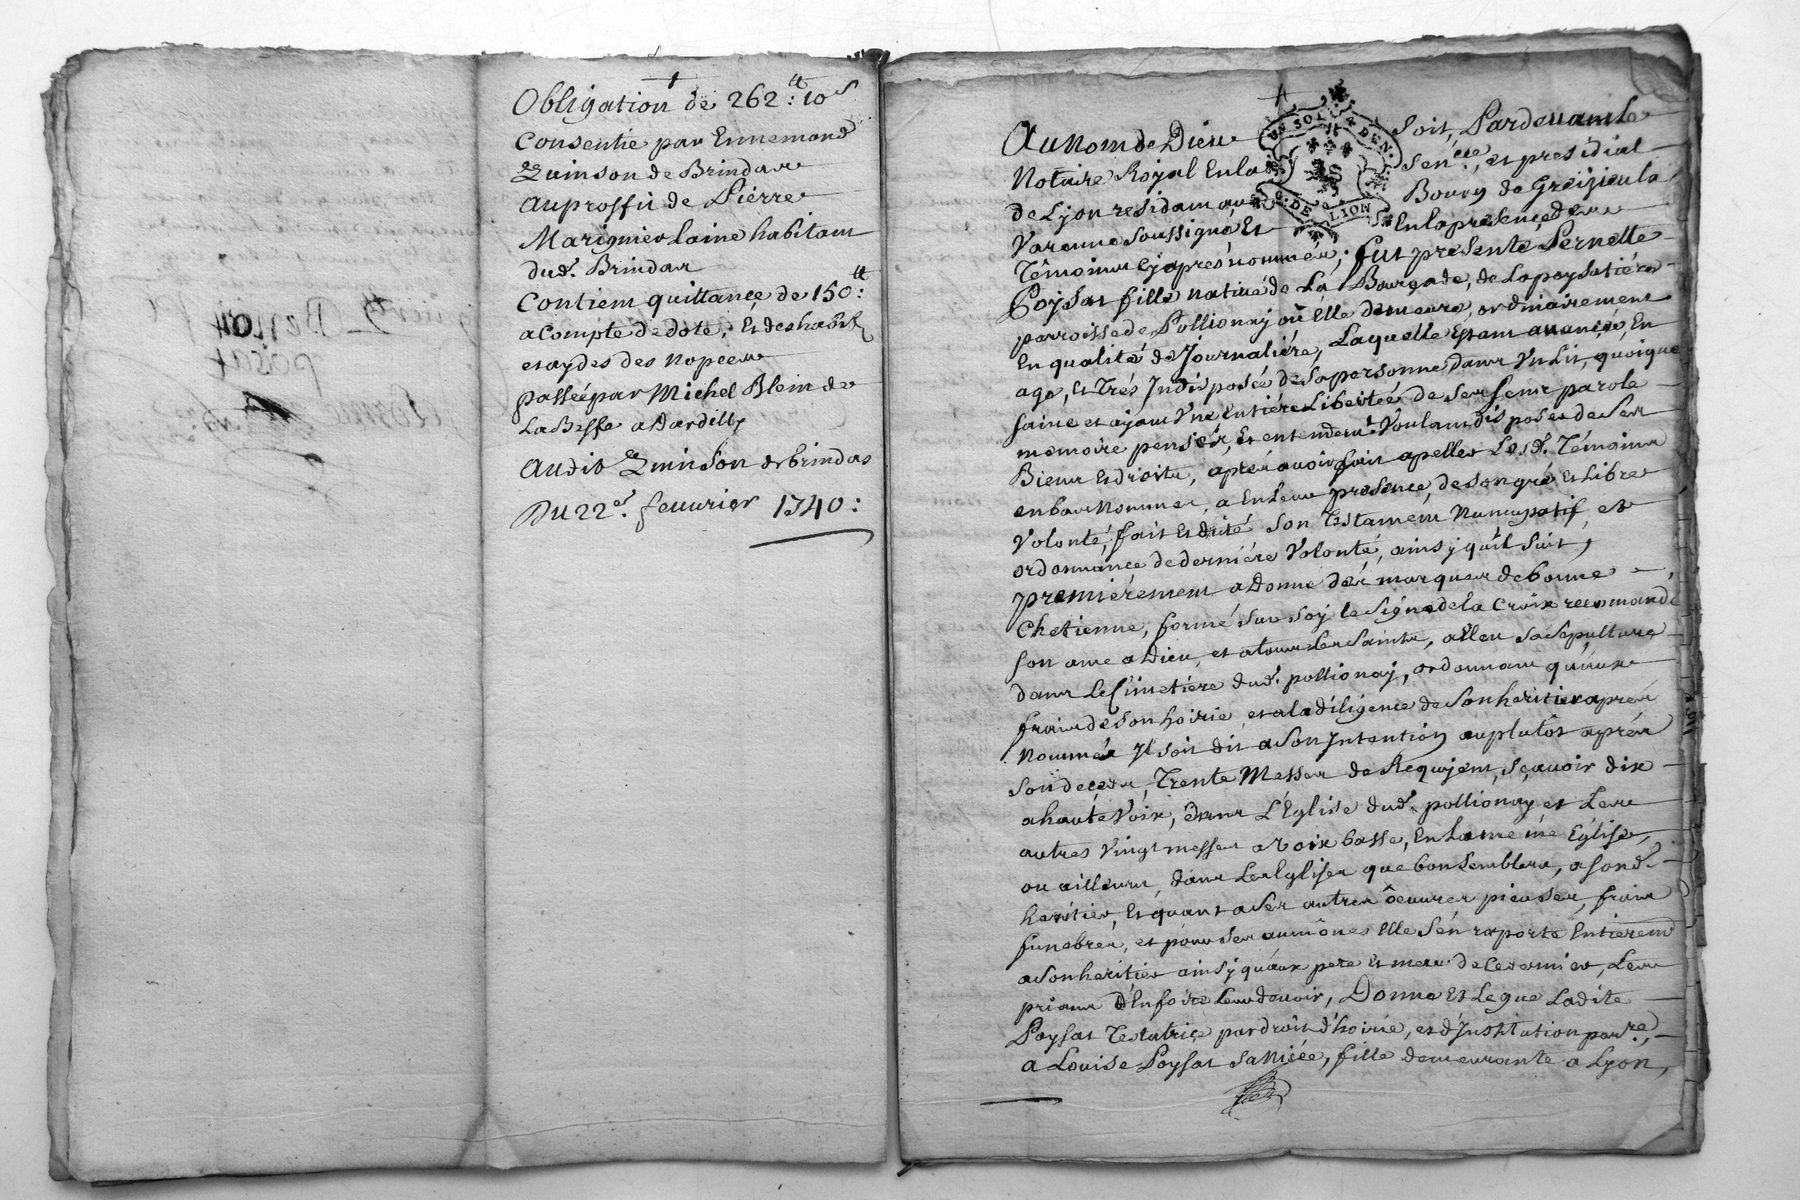 Obligation de 262:₶ 10ˢ
Consentie par Ennemond
Quinson de Brindas
au proffit de Pierre
Marignier laine habitant
dud. Brindas
Contient quittance de 150:₶
a Compte de dote, Et des
et aydes des nopces
passée par Michel Blein de
La Biffe a Dardilly
audit Quinson de brindas
Du 22e. feuurier 1740:
Au Nom de Dieu Soit, Pardeuant le
Notaire Royal En la Sen.cee, et presidial
de Lyon residant au Bourg de Greizieu la
Varenne soussigné, Et En la presence des
Témoins cy apres nommés, fut presente, Pernette
Poysat fille natiue de La Bourgade, de la poysatiére
parroisse de Pollionay où Elle demeure, ordinairement
En qualité de Journaliére, Laquelle Estant auancée, En
age, Et Trés Indisposée de sa personne Dans Un Lit, quoique
saine et ayant Une Entiére Libertée de ses sens parole
memoire pensée, Et entendemt. Voulant disposer de ses
Biens Et droits, aprés auoir fait apeller Les d. Témoins
en bas Nommes, a En Leur presence, de son gré Et Libre
Volonté, fait Et dicté son Testament Nuncupatif, et
ordonnance de derniére Volonté, ainsy quil suit,
premiérement a Donné des marques de bonne
Chetienne, formé sur soy le Signe de la Croix recommandé
son ame a Dieu, et a tous Les Saints, a Eleu sa Sepulture
dans Le Cimetiére dud. pollionay, ordonnant quaux
frais de son hoirie, et a la diligence de son heritier aprés
Nommés Il soit dit a son Intention au plutôt aprés
son deces, Trente Messes de Requiem, Sçauoir dix
a haute Voix, dans L'Eglise dud. pollionay et Les
autres Vingt messes a Voix basse, En La méme Eglise,
ou ailleurs, dans Les Eglises que bon semblera, a son d.
heritier, Et quant a Ses autres oeuures pieuses, frais
funebres, et pour ses aumônes Elle s'en raporte Entierem
a son heritier ainsy quaux pere et mere de Ce dernier, Les
priant d'En faire Leur deuoir, Donne Et Legue Ladite
Poysat Testatrice par droit d'hoirie, et d'Institution par.re,
a Louise Poysat sa Niéce, fille demeurante a Lyon,
UN SOL 4 DEN.
G. DE LION